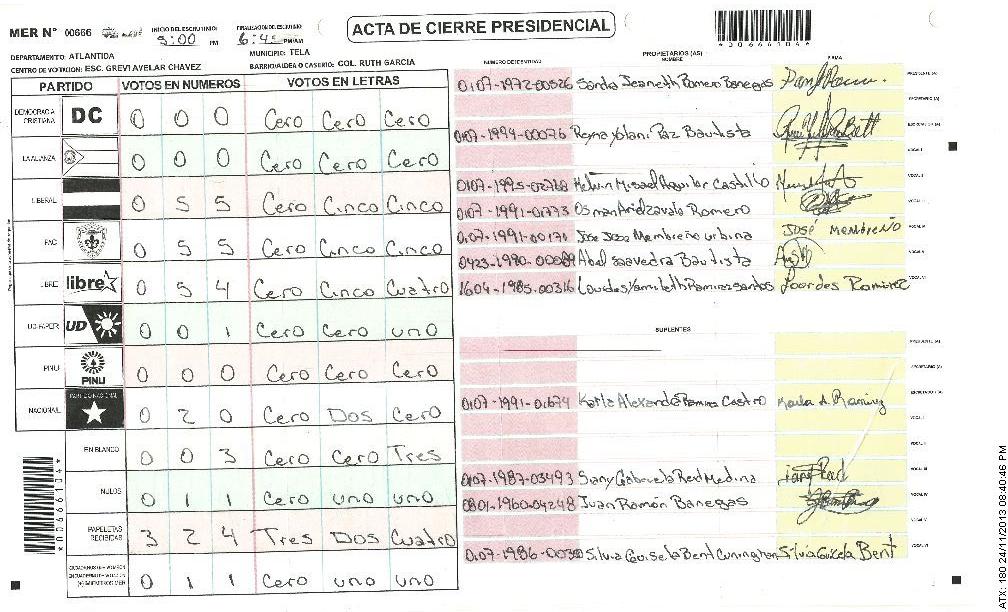 ACTA DE CIERRE PRESIDENCIAL
MER N° 00666
INICIO DEL ESCRUTINIO 5:00 PM
FINALIZACION DEL ESCRUTINIO 6:45 PM/AM
DEPARTAMENTO: ATLANTIDA
MUNICIPIO: TELA
CENTRO DE VOTACION: ESC. GREVI AVELAR CHAVEZ
BARRIO/ALDEA O CASERIO: COL. RUTH GARCIA
PARTIDO VOTOS EN NUMEROS VOTOS EN LETRAS
DEMOCRACIA CRISTIANA DC 0 0 0 Cero Cero Cero
LA ALIANZA 0 0 0 Cero Cero Cero
LIBERAL 0 5 5 Cero Cinco Cinco
PAC 0 5 5 Cero Cinco Cinco
LIBRE libre 0 5 4 Cero Cinco Cuatro
UD-FAPER UD 0 0 1 Cero Cero uno
PINU PINU 0 0 0 Cero Cero Cero
NACIONAL PARTIDO NACIONAL 0 2 0 Cero Dos Cero
EN BLANCO 0 0 3 Cero Cero Tres
NULOS 0 1 1 Cero uno uno
PAPELETAS RECIBIDAS 3 2 4 Tres Dos Cuatro
0 1 1 Cero uno uno
PROPIETARIOS (AS)
NUMERO DE IDENTIDAD NOMBRE FIRMA
0107-1972-00526 Sandra Jeaneth Romero Banegas PRESIDENTE (A)
SECRETARIO (A)
0107-1994-00076 Reyna Yolani Paz Bautista ESCRUTADOR (A)
VOCAL I
0107-1995-02768 Melvin Misael Aguilar Castillo VOCAL II
0107-1991-01773 Osman Ariel Zavala Romero
0107-1991-00171 Jose Jose Membreño urbina JOSÉ MEMBREÑO VOCAL IV
0423-1980-00089 Abel Saavedra Bautista VOCAL V
1604-1985-00316 Lourdes Yamileth Ramirez Santos Lourdes Ramirez VOCAL VI
SUPLENTES
PRESIDENTE (A)
SECRETARIO (A)
0107-1991-01674 Karla Alexandra Ramirez Castro Karla A. Ramirez ESCRUTADOR (A)
VOCAL I
VOCAL II
0107-1987-03493 Siany Gabriela Red Medina VOCAL III
0801-1960-04248 Juan Ramón Banegas VOCAL IV
VOCAL V
Silvia Guisela Bent Cunington Silvia Guisela Bent VOCAL VI
ATX: 180 24/11/2013 08:40:46 PM